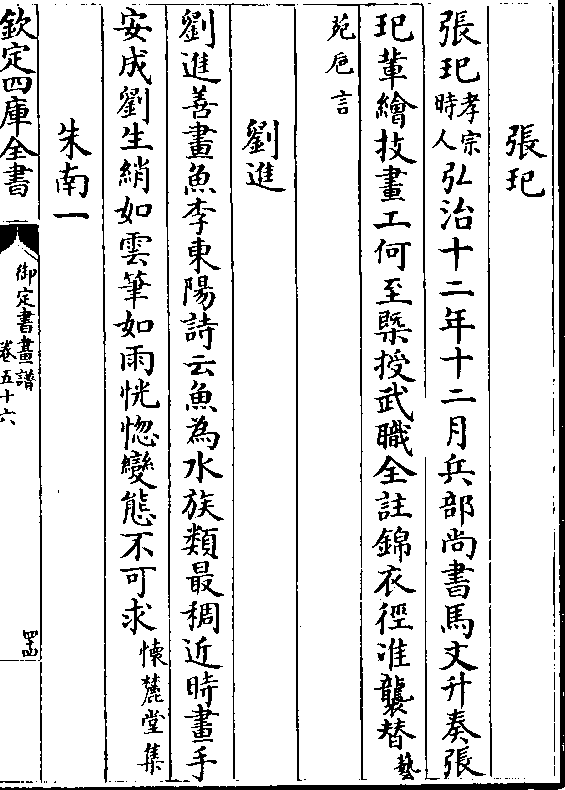 張玘
張玘孝宗時人弘治十二年十二月兵部尚書馬文升奏張
玘輩繪技畫工何至槩授武職全註錦衣徑准襲替藝
苑巵言
劉進
劉進善畫魚李東陽詩云魚為水族類最稠近時畫手
安成劉生綃如雲筆如雨恍惚變態不可求懷麓堂集
朱南一
欽定四庫全書
御定書畫譜
卷五十六